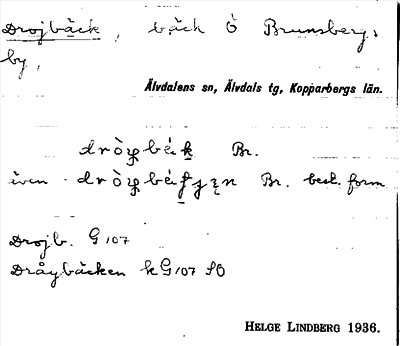 Drojbäck, bäck Ö Brunsberg,
by,
Älvdalens sn, Älvdals tg, Kopparbergs län.
Br.
även Br. best. form
Drojb. G 107
Dråybäcken k G 107 SO
HELGE LINDBERG 1936.